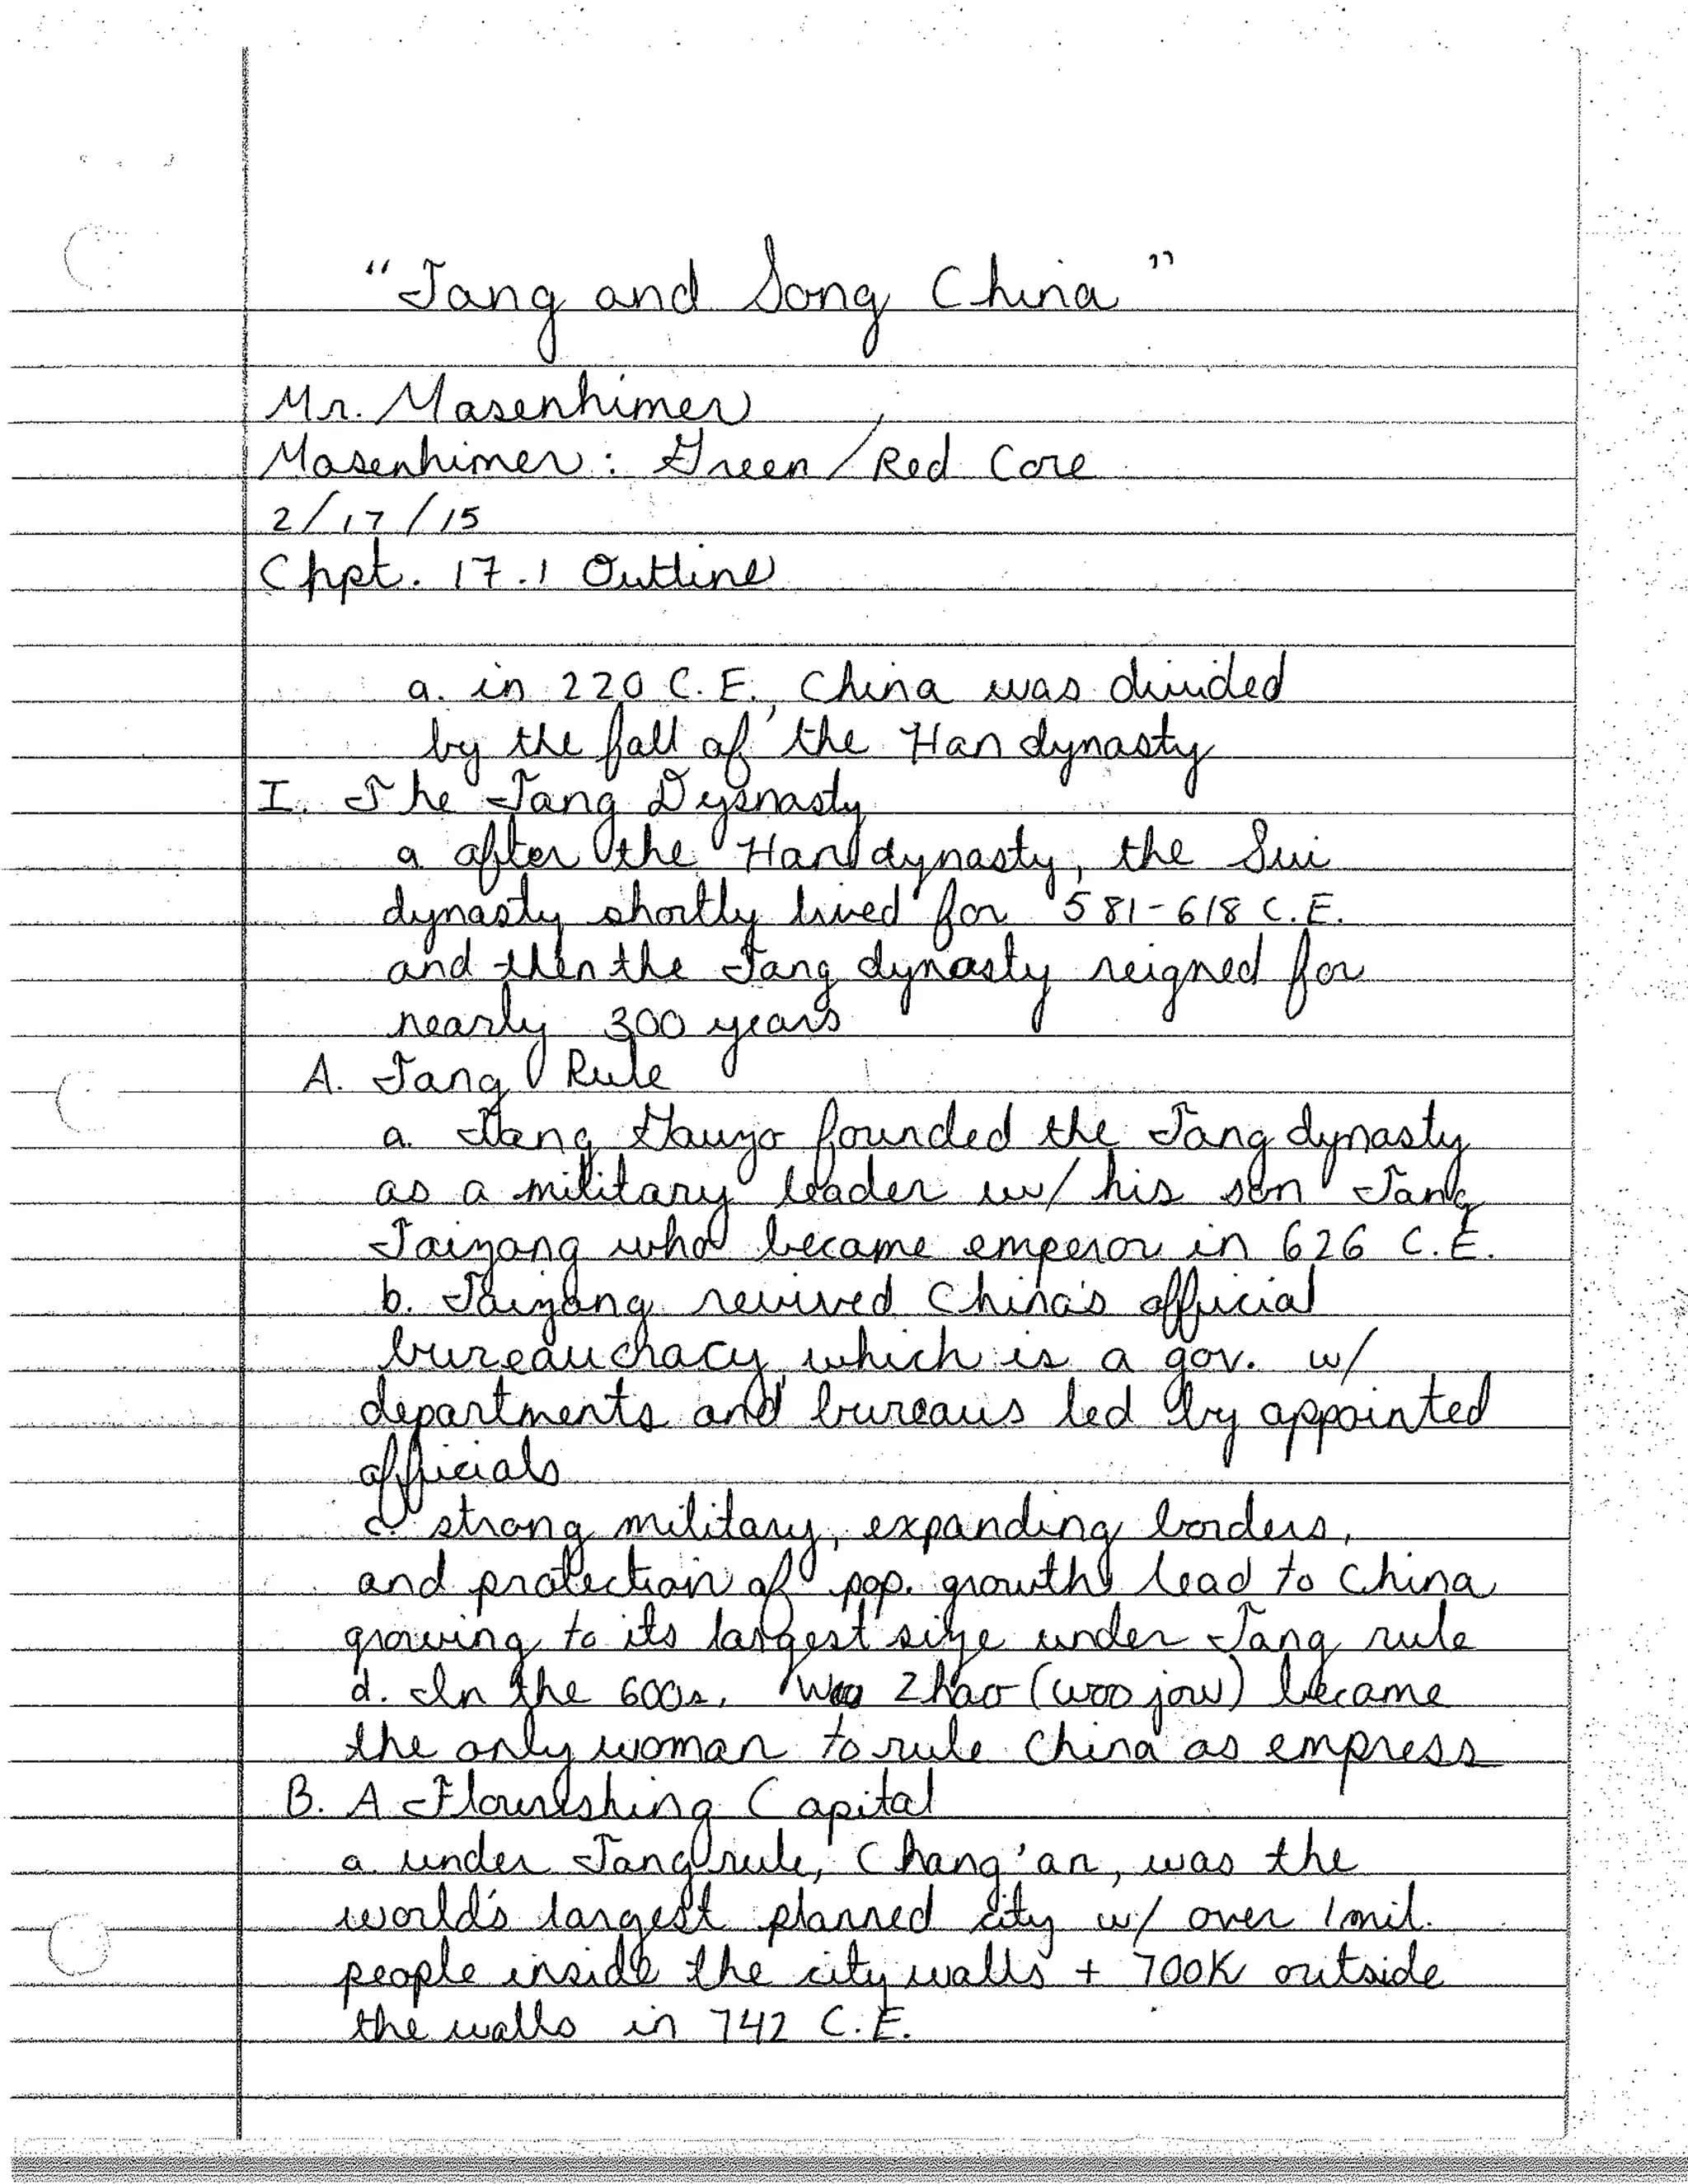 "Tang and Song China"
Mr. Masenhimer
Masenhimer: Green/Red Core
2/17/15
Chpt. 17.1 Outline
a. in 220 C.E., China was divided
by the fall of the Han dynasty
I. The Tang Dysnasty
a. after the Han dynasty, the Sui
dynasty shortly lived for 581-618 C.E.
and then the Tang dynasty reigned for
nearly 300 years
A. Tang Rule
a. Tang Gauzo founded the Tang dynasty
as a military leader w/ his son Tang
Taizong who became emperor in 626 C.E.
b. Taizong revived China's official
bureauchacy, which is a gov. w/
departments and bureaus led by appointed
officials
c. strong military, expanding borders,
and protection of pop. growth lead to China
growing to its largest size under Tang rule
d. In the 600s, Woo Zhao (woo jow) became
the only woman to rule China as empress
B. A Flourishing Capital
a. under Tang rule, Chang'an, was the
world's largest planned city w/ over 1 mil.
people inside the city walls + 700K outside
the walls in 742 C.E.